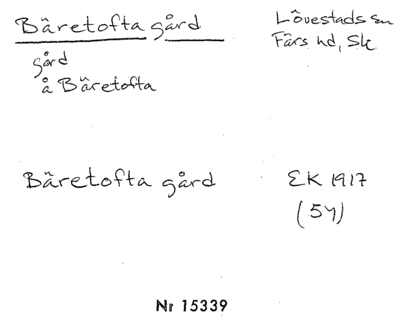 Bäretofta gård
Lövestads sn
Färs hd, Sk
gård
å Bäretofta
Bäretofta gård
EK 1917
(54)
Nr 15339